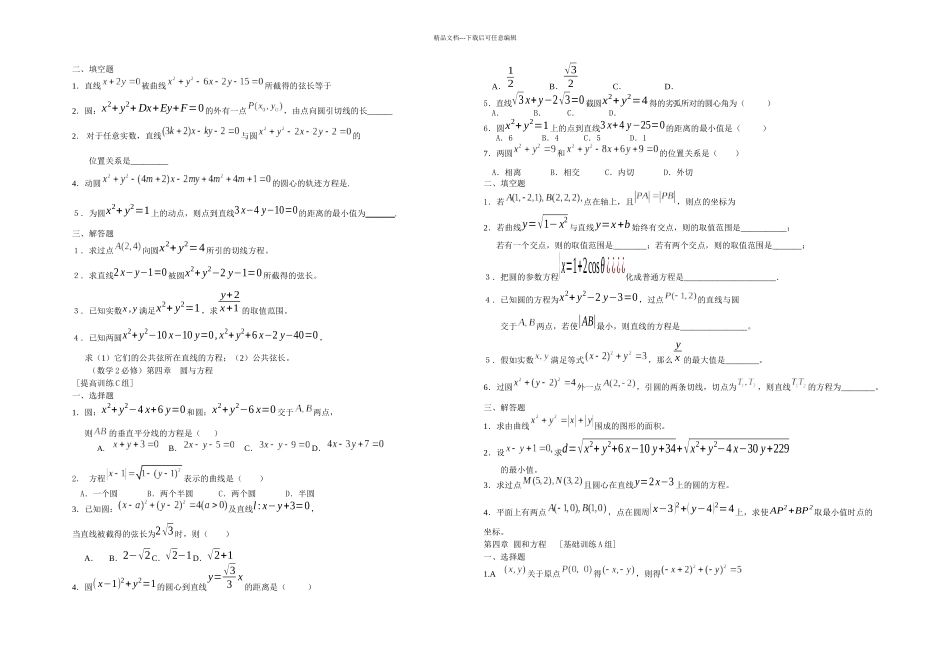 精品文档---下载后可任意编辑
二、填空题
1．直线 x+2y=0 被曲线 x²+y²−6x−2y−15=0 所截得的弦长等于
2．圆：x²+y²+Dx+Ey+F=0 的外有一点 P(x₀,y₀)，由点向圆引切线的长______
2．对于任意实数，直线 (3k+2)x−ky−2=0 与圆 x²+y²−2x−2y−2=0 的
位置关系是_________
4．动圆 x²+y²−(4m+2)x−2my+4m²+4m+1=0 的圆心的轨迹方程是.
５．为圆 x²+y²=1 上的动点，则点到直线 3x−4y−10=0 的距离的最小值为_______.
三、解答题
１．求过点 A(2,4) 向圆 x²+y²=4 所引的切线方程。
２．求直线 2x−y−1=0 被圆 x²+y²−2y−1=0 所截得的弦长。
３．已知实数 x,y 满足 x²+y²=1，求 (y+2)/(x+1) 的取值范围。
４．已知两圆 x²+y²−10x−10y=0,x²+y²+6x−2y−40=0，
求（1）它们的公共弦所在直线的方程；（2）公共弦长。
（数学２必修）第四章 圆与方程
［提高训练C组］
一、选择题
1．圆：x²+y²−4x+6y=0 和圆：x²+y²−6x=0 交于 A,B 两点，
则 AB 的垂直平分线的方程是（ ）
A. x+y+3=0 B．2x−y−5=0 C．3x−y−9=0 D．4x−3y+7=0
2． 方程 |x−1|=√(1−(y−1)²) 表示的曲线是（ ）
A．一个圆 B．两个半圆 C．两个圆 D．半圆
3．已知圆：(x−a)²+(y−2)²=4(a>0) 及直线 l:x−y+3=0，
当直线被截得的弦长为 2√3 时，则（ ）
A． B．2−√2 C．√2−1 D．√2+1
4．圆 (x−1)²+y²=1 的圆心到直线 y=√3/3 x 的距离是（ ）
A．1/2 B．√3/2 C． D．
5．直线 √3x+y−2√3=0 截圆 x²+y²=4 得的劣弧所对的圆心角为（ ）
A． B． C． D．
6．圆 x²+y²=1 上的点到直线 3x+4y−25=0 的距离的最小值是（ ）
A．6 B．4 C．5 D．1
7．两圆 x²+y²=9 和 x²+y²−8x+6y+9=0 的位置关系是（ ）
A．相离 B．相交 C．内切 D．外切
二、填空题
1．若 A(1,-2,1),B(2,2,2), 点在轴上，且 |PA|=|PB|，则点的坐标为
2．若曲线 y=√(1−x²) 与直线 y=x+b 始终有交点，则的取值范围是___________；
若有一个交点，则的取值范围是________；若有两个交点，则的取值范围是_______；
３．把圆的参数方程 {x=1+2cosθ¿¿¿¿ 化成普通方程是______________________．
４．已知圆的方程为 x²+y²−2y−3=0，过点 P(−1,2) 的直线与圆
交于 A,B 两点，若使 |AB| 最小，则直线的方程是________________。
５．假如实数 x,y 满足等式 (x−2)²+y²=3，那么 y/x 的最大值是________。
６．过圆 x²+(y−2)²=4 外一点 A(2,-)，引圆的两条切线，切点为 T₁,T₂，则直线 T₁T₂ 的方程为________。
三、解答题
１．求由曲线 x²+y²=|x|+|y| 围成的图形的面积。
２．设 x−y+1=0, 求 d=√(x²+y²+6x−10y+34)+√(x²+y²−4x−30y+229)
的最小值。
３．求过点 M(5,2),N(3,2) 且圆心在直线 y=2x−3 上的圆的方程。
４．平面上有两点 A(−1,0),B(1,0)，点在圆周 (x−3)²+(y−4)²=4 上，求使 AP²+BP² 取最小值时点的
坐标。
第四章 圆和方程 ［基础训练A组］
一、选择题
1.A (x,y) 关于原点 P(0, 0) 得 (−x,−y)，则得 (−x+2)²+(−y)²=5